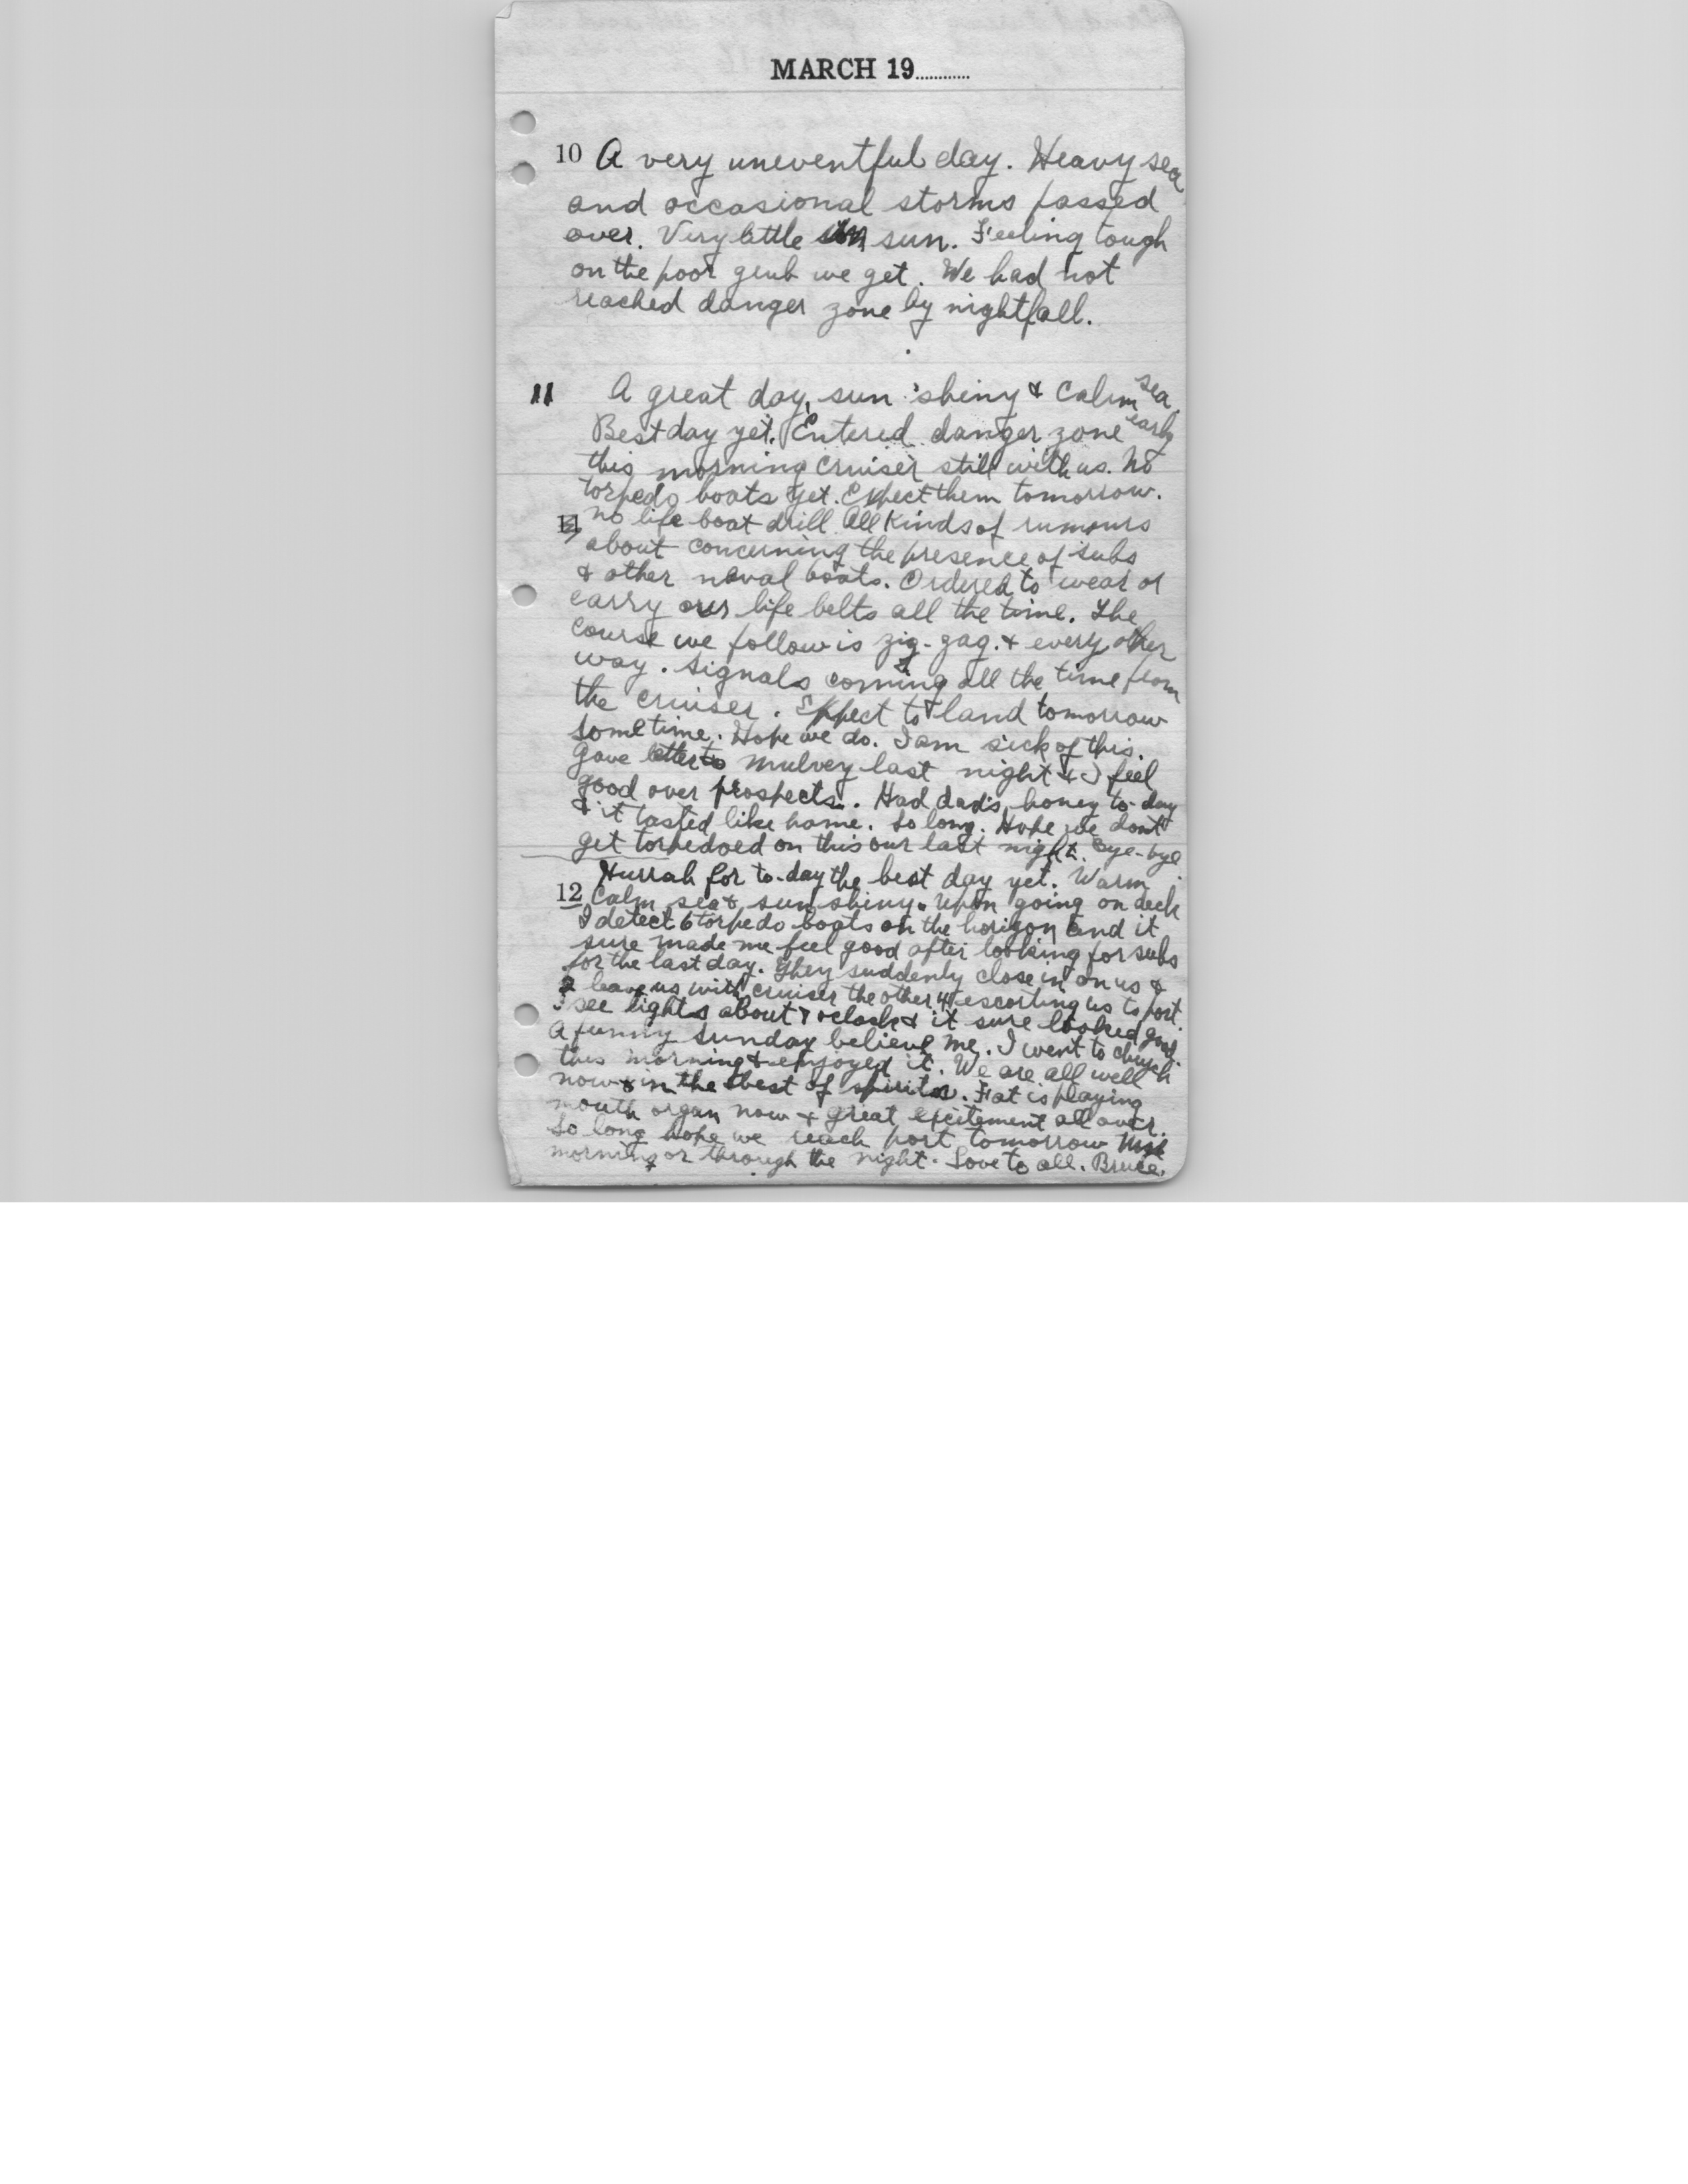 MARCH 19............
10 A very uneventful day. Heavy sea
and occasional storms passed
over. Very little sun. Feeling tough
on the poor grub we get. We had not
reached danger zone by nightfall.
11 A great day, sun shiny & calm sea.
Best day yet. Entered danger zone early
this morning cruiser still with us. No
torpedo boats yet. Expect them tomorrow.
11 no life boat drill All kinds of rumours
about concerning the presence of subs
& other naval boats. Ordered to wear or
carry our life belts all the time. The
course we follow is zig-zag. & every other
way. Signals coming all the time from
the cruiser. Expect to land tomorrow
sometime. Hope we do. I am sick of this.
Gave letter to Mulvey last night & I feel
good over prospects. Had dad's honey to-day
& it tasted like home. So long. Hope we don't
get torpedoed on this our last night. Bye-bye.
Hurrah for to-day the best day yet. Warm
12 Calm sea & sun shiny. Upon going on deck
I detect 6 torpedo boats on the horizon and it
sure made me feel good after looking for subs
for the last day. They suddenly close in on us &
2 leave us with cruiser the other 4 escorting us to port.
I see lights about 7 oclock & it sure looked good.
A funny Sunday believe me. I went to church
this morning & enjoyed it. We are all well
now & in the best of spirits. Fat is playing
mouth organ now & great excitement all over.
So long hope we reach port tomorrow
morning or through the night. Love to all. Bruce.